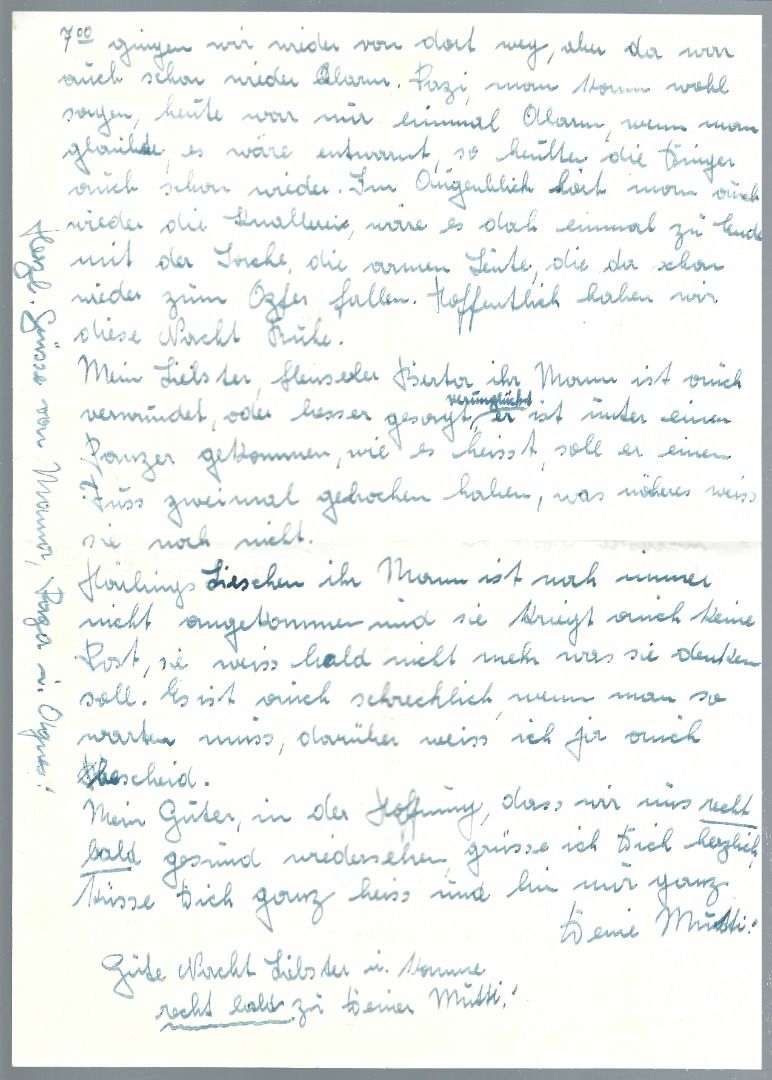 7⁰⁰ gingen wir wieder von dort weg, aber da war
auch schon wieder Alarm. Pazi, man kann wohl
sagen, heute war nur einmal Alarm, wenn man
glaubte, es wäre entwarnt, so heulten die Dinger
auch schon wieder. Im Augenblick hört man auch
wieder die Knallerei, wäre es doch einmal zu Ende
mit der Sache, die armen Leute, die da schon
wieder zum Opfer fallen. Hoffentlich haben wir
diese Nacht Ruhe.
Mein Liebster, Berta ihr Mann ist auch
verwundet, oder besser gesagt, verunglückt er ist unter einen
Panzer gekommen, wie es heisst, soll er einen
Fuss zweimal gebrochen haben, was näheres weiss
sie noch nicht.
Härlings Lieschen ihr Mann ist noch immer
nicht angekommen und sie kriegt auch keine
Post, sie weiss bald nicht mehr was sie denken
soll. Es ist auch schrecklich, wenn man so
warten muss, darüber weiss ich ja auch
bescheid.
Mein Guter, in der Hoffnung, dass wir uns recht
bald gesund wiedersehen, grüsse ich Dich herzlich,
küsse Dich ganz heiss und bin nur ganz
Deine Mutti!
Gute Nacht Liebster u. komme
recht bald zu Deiner Mutti!
Herzl. Grüsse von Mama, u. Agnes!